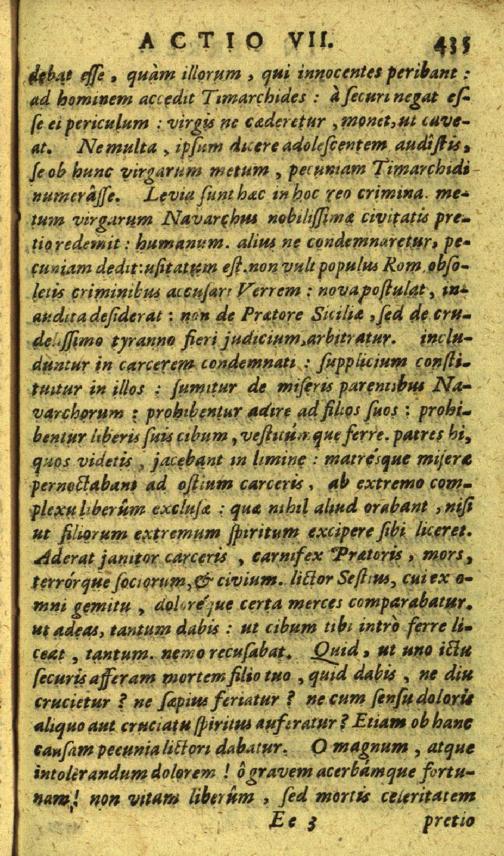 ACTIO VII. 435
debat esse, quàm illorum, qui innocentes peribant:
ad hominem accedit Timarchides: à securi negat es-
se ei periculum: virgis ne cæderetur, monet, ut cave-
at. Ne multa, ipsum dicere adolescentem audistis,
se ob hunc virgarum metum, pecuniam Timarchidi
numerâsse. Levia sunt hæc in hoc reo crimina. me-
tum virgarum Navarchus nobilissimæ civitatis pre-
tio redemit: humanum. alius ne condemnaretur, pe-
cuniam dedit: usitatum est. non vult populus Rom. obso-
letis criminibus accusari Verrem: nova postulat, in-
audita desiderat: non de Prætore Siciliæ, sed de cru-
delissimo tyranno fieri judicium, arbitratur. inclu-
duntur in carcerem condemnati: supplicium consti-
tuitur in illos: sumitur de miseris parentibus Na-
varchorum: prohibentur adire ad filios suos: prohi-
bentur liberis suis cibum, vestitúmque ferre. patres hi,
quos videtis, jacebant in limine: matrésque miseræ
pernoctabant ad ostium carceris, ab extremo com-
plexu liberûm exclusæ: quæ nihil aliud orabant, nisi
ut filiorum extremum spiritum excipere sibi liceret.
Aderat janitor carceris, carnifex Prætoris, mors,
terrórque sociorum, & civium. lictor Sestius, cui ex o-
mni gemitu, doloréque certa merces comparabatur.
ut adeas, tantum dabis: ut cibum tibi intrò ferre li-
ceat, tantum. nemo recusabat. Quid, ut uno ictu
securis afferam mortem filio tuo, quid dabis, ne diu
crucietur? ne sæpius feriatur? ne cum sensu doloris
aliquo aut cruciatu spiritus auferatur? Etiam ob hanc
causam pecunia lictori dabatur. O magnum, atque
intolerandum dolorem! ô gravem acerbámque fortu-
nam! non vitam liberûm, sed mortis celeritatem
Ee 3 pretio